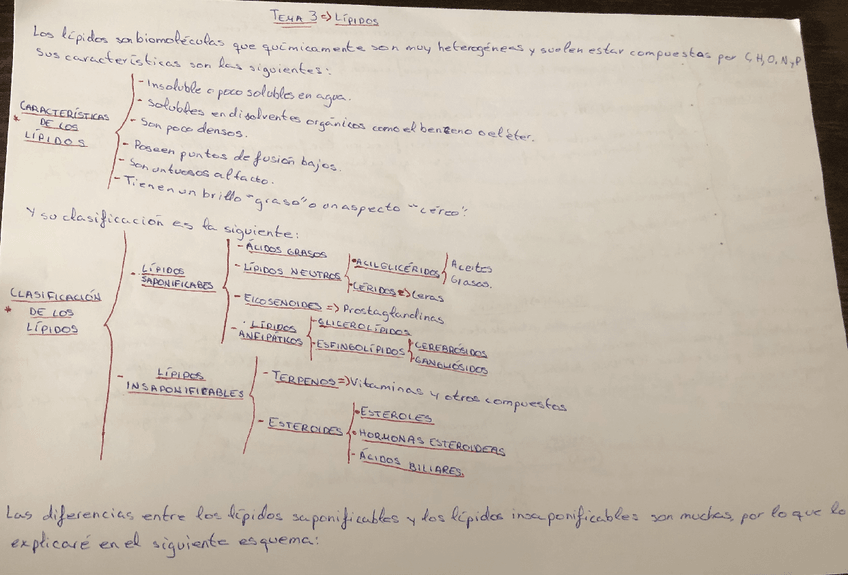 TEMA 3 => LÍPIDOS
Los lípidos son biomoléculas que químicamente son muy heterogéneas y suelen estar compuestas por C,H,O,N,yP
Sus características son las siguientes:
CARACTERÍSTICAS
* DE LOS
LÍPIDOS
- Insoluble o poco solubles en agua.
- Solubles en disolventes orgánicos como el benceno o el éter.
- Son poco densos.
- Poseen puntos de fusión bajos.
- Son untuosos al tacto.
- Tienen un brillo "graso" o un aspecto "céreo".
Y su clasificación es la siguiente:
CLASIFICACIÓN
* DE LOS
LÍPIDOS
- LÍPIDOS
SAPONIFICABES
- ÁCIDOS GRASOS
- LÍPIDOS NEUTROS
• ACILGLICÉRIDOS
Aceites
Grasas.
• CÉRIDOS => Ceras
- EICOSENOIDES => Prostaglandinas
- LÍPIDOS
ANFIPÁTICOS
- GLICEROLÍPIDOS
- ESFINGOLÍPIDOS
CEREBRÓSIDOS
GANGLIÓSIDOS
- LÍPIDOS
INSAPONIFICABLES
- TERPENOS => Vitaminas y otros compuestos
- ESTEROIDES
• ESTEROLES
• HORMONAS ESTEROIDEAS
- ÁCIDOS BILIARES.
Las diferencias entre los lípidos saponificables y los lípidos insaponificables son muchas, por lo que lo
explicaré en el siguiente esquema: